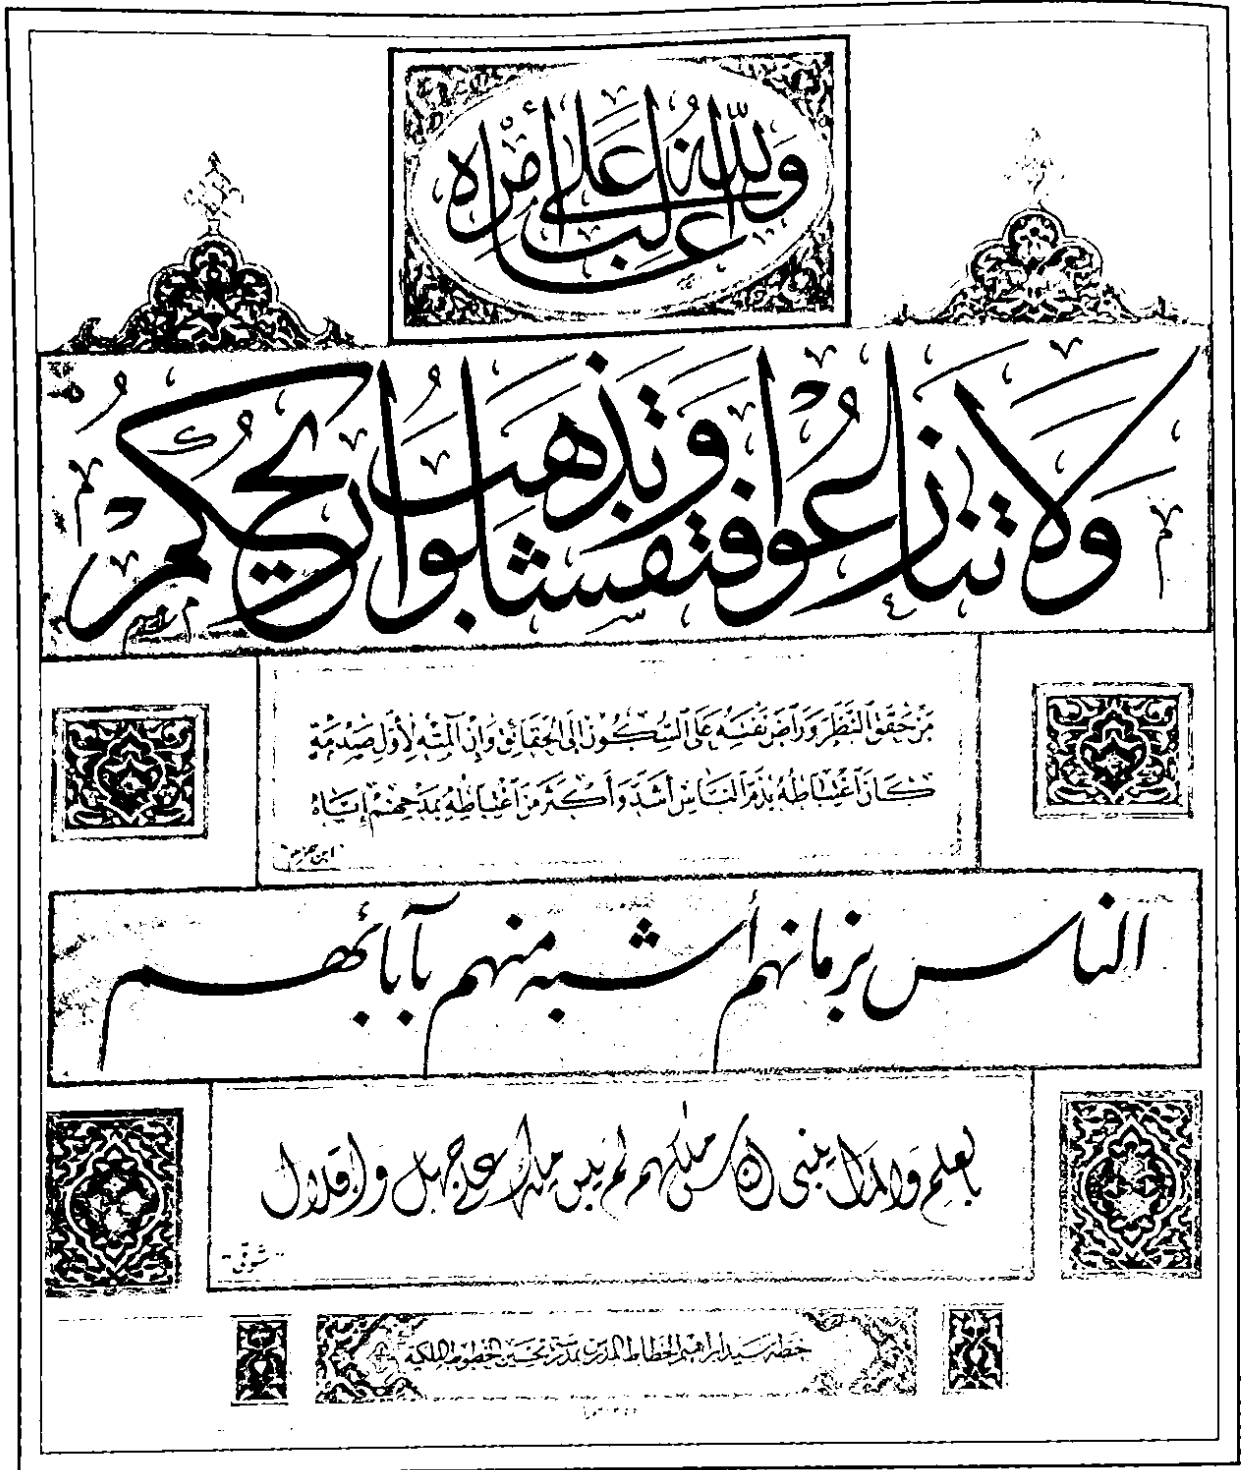 وَاللَّهُ غَالِبٌ عَلَى أَمْرِهِ
وَلَا تَنَازَعُوا فَتَفْشَلُوا وَتَذْهَبَ رِيحُكُمْ
مَنْ حَقَّقَ النَّظَرَ وَرَاضَ نَفْسَهُ عَلَى السُّكُونِ إِلَى الحَقَائِقِ وَإِنْ آلَمَتْهُ لِأَوَّلِ صَدْمَةٍ
كَانَ اغْتِبَاطُهُ بِذَمِّ النَّاسِ أَشَدَّ وَأَكْثَرَ مِنَ اغْتِبَاطِهِ بِمَدْحِهِمْ إِيَّاهُ
ابن حزم
الناس بزمانهم أشبه منهم بآبائهم
بالعلم والمال يبنى الناس ملكهم لم يبن ملك على جهل وإقلال
شوقي
خطه سيد ابراهيم الخطاط المدرس بمدرسة تحسين الخطوط الملكية